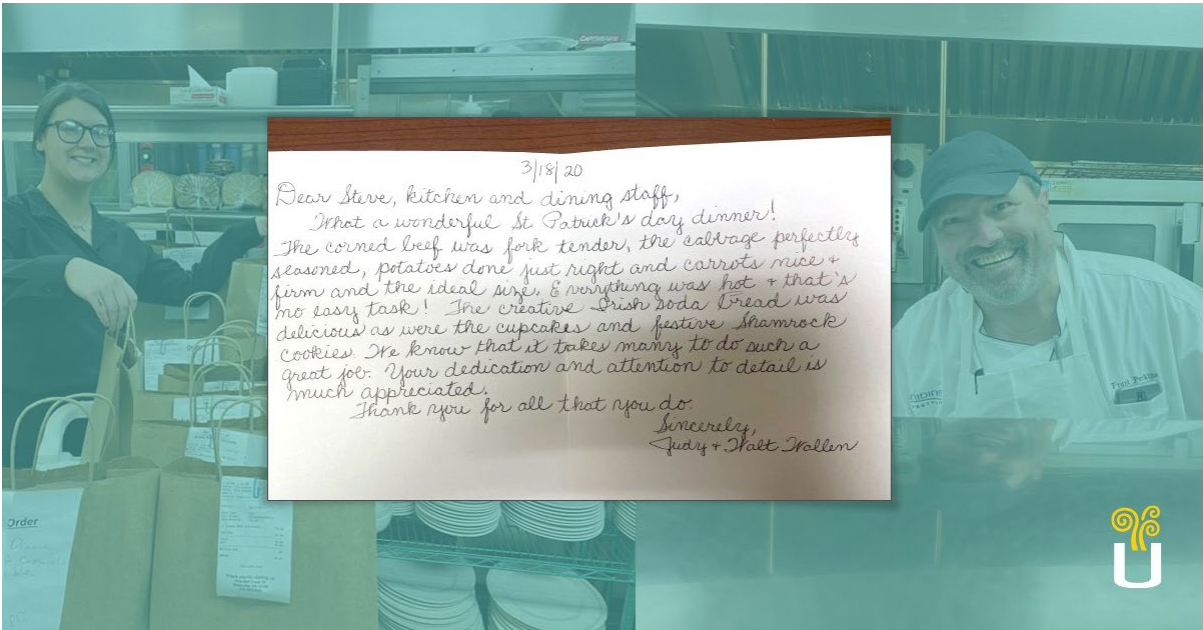 3/18/20
Dear Steve, kitchen and dining staff,
What a wonderful St Patrick's day dinner!
The corned beef was fork tender, the cabbage perfectly
seasoned, potatoes done just right and carrots nice +
firm and the ideal size. Everything was hot + that's
no easy task! The creative Irish soda bread was
delicious as were the cupcakes and festive Shamrock
cookies. We know that it takes many to do such a
great job. Your dedication and attention to detail is
much appreciated.
Thank you for all that you do.
Sincerely,
Judy + Walt Wallen
Order
U